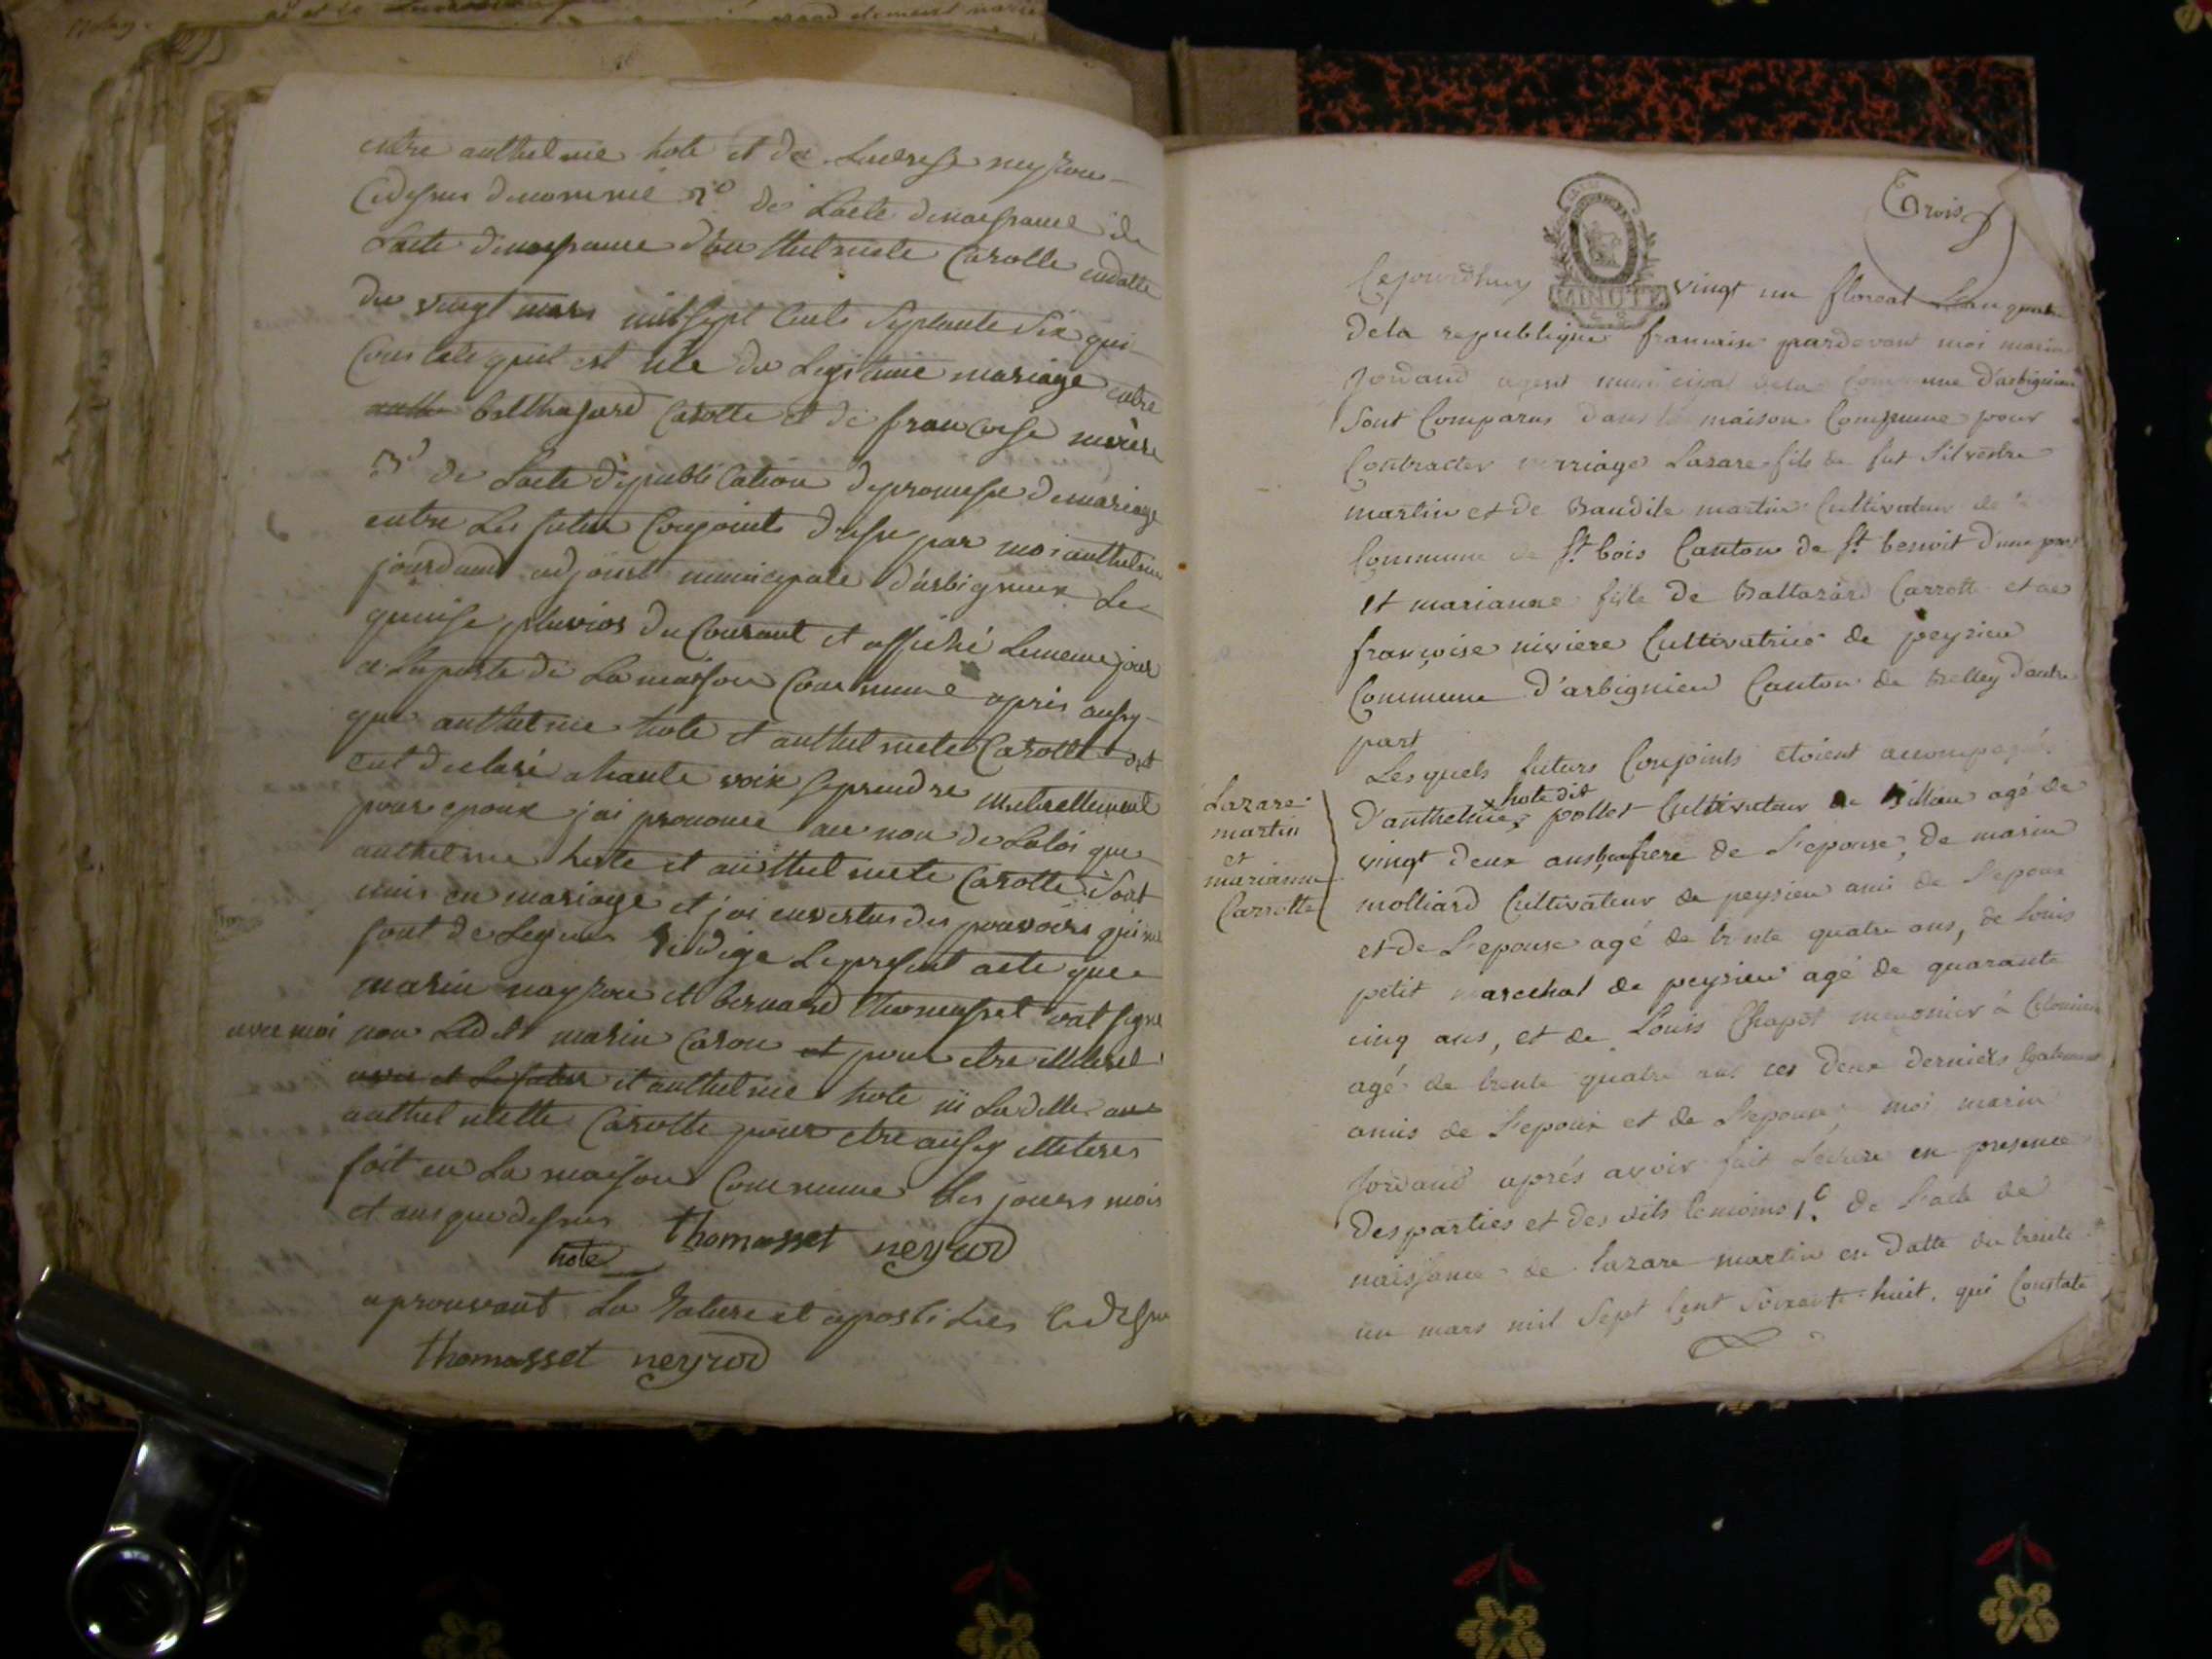 entre anthelme hote et de Lucresse neyrou
Cidessus denommé 2º de Lacte denaissance de
Lacte denaissance d'anthelmete Carotte endatte
du vingt mars mil sept Cents Septante Six qui
Constate quil est née du Legitime mariage entre
balthazard Carotte et de francoise nivière
3º de Lacte depublication depromesse demariage
entre Les futur Conjoints dressé par moi anthelme
jourdand adjoint municipale d'arbignieux Le
quinse pluvios du Courant et affiché Lememe jour
a Laporte de La maison Commune apris aussy
que anthelme hote et anthelmete Carotte
eut declaré ahaute voix seprendre mutuellement
pour epoux jai prononcé au nom de Laloi que
anthelme hote et anthelmete Carotte sont
unis en mariage et j'ai envertus des pouvoirs qui me
sont delegues Redigé Lepresent acte que
marin neyrou et bernard Thomasset ont signé
avec moi non Ledit marin Caron et pour etre illiteré
et anthelme hote ni Ladite
anthelmette Carotte pour etre aussy illiteres
fait en La maison Commune Les jours mois
et ans que dessus Thomasset neyrod
hote
aprouvant La Rature et apostilles Cidessus
Thomasset neyrod
Trois
Cejourdhuy vingt un floreal L'an quatre
MINUTE
dela republique francaise pardevant moi marin
Jordand agent municipal dela Commune d'arbignieu
Sont Comparus dans la maison Commune pour
Contracter marriage Lazare fils de fut Silvestre
martin et de Baudile martin Cultivateur de la
Commune de St bois Canton de St benoit d'une part
et marianne fille de Baltazard Carrotte et de
françoise niviere Cultivatrice de peysieu
Commune d'arbignieu Canton de Belley d'autre
part
Lesquels futurs Conjoints etoient accompagnés
Lazare
martin
et
marianne
Carrotte
d'anthelme hote dit pollet Cultivateur de agé de
vingt deux ans, beaufrere de L'epouse, de marin
molliard Cultivateur de peysieu ami de L'epoux
et de L'epouse agé de trente quatre ans, de Louis
petit marechal de peysieu agé de quarante
cinq ans, et de Louis Chapot meuonier à
agé de trente quatre ans ces deux derniers Egalement
amis de L'epoux et de L'epouse, moi marin
Jordand aprés avoir fait Lecture en presence
des parties et des dits temoins 1.º de L'acte de
naissance de lazare martin en datte du trente
un mars mil Sept Cent Soixante huit. qui Constate